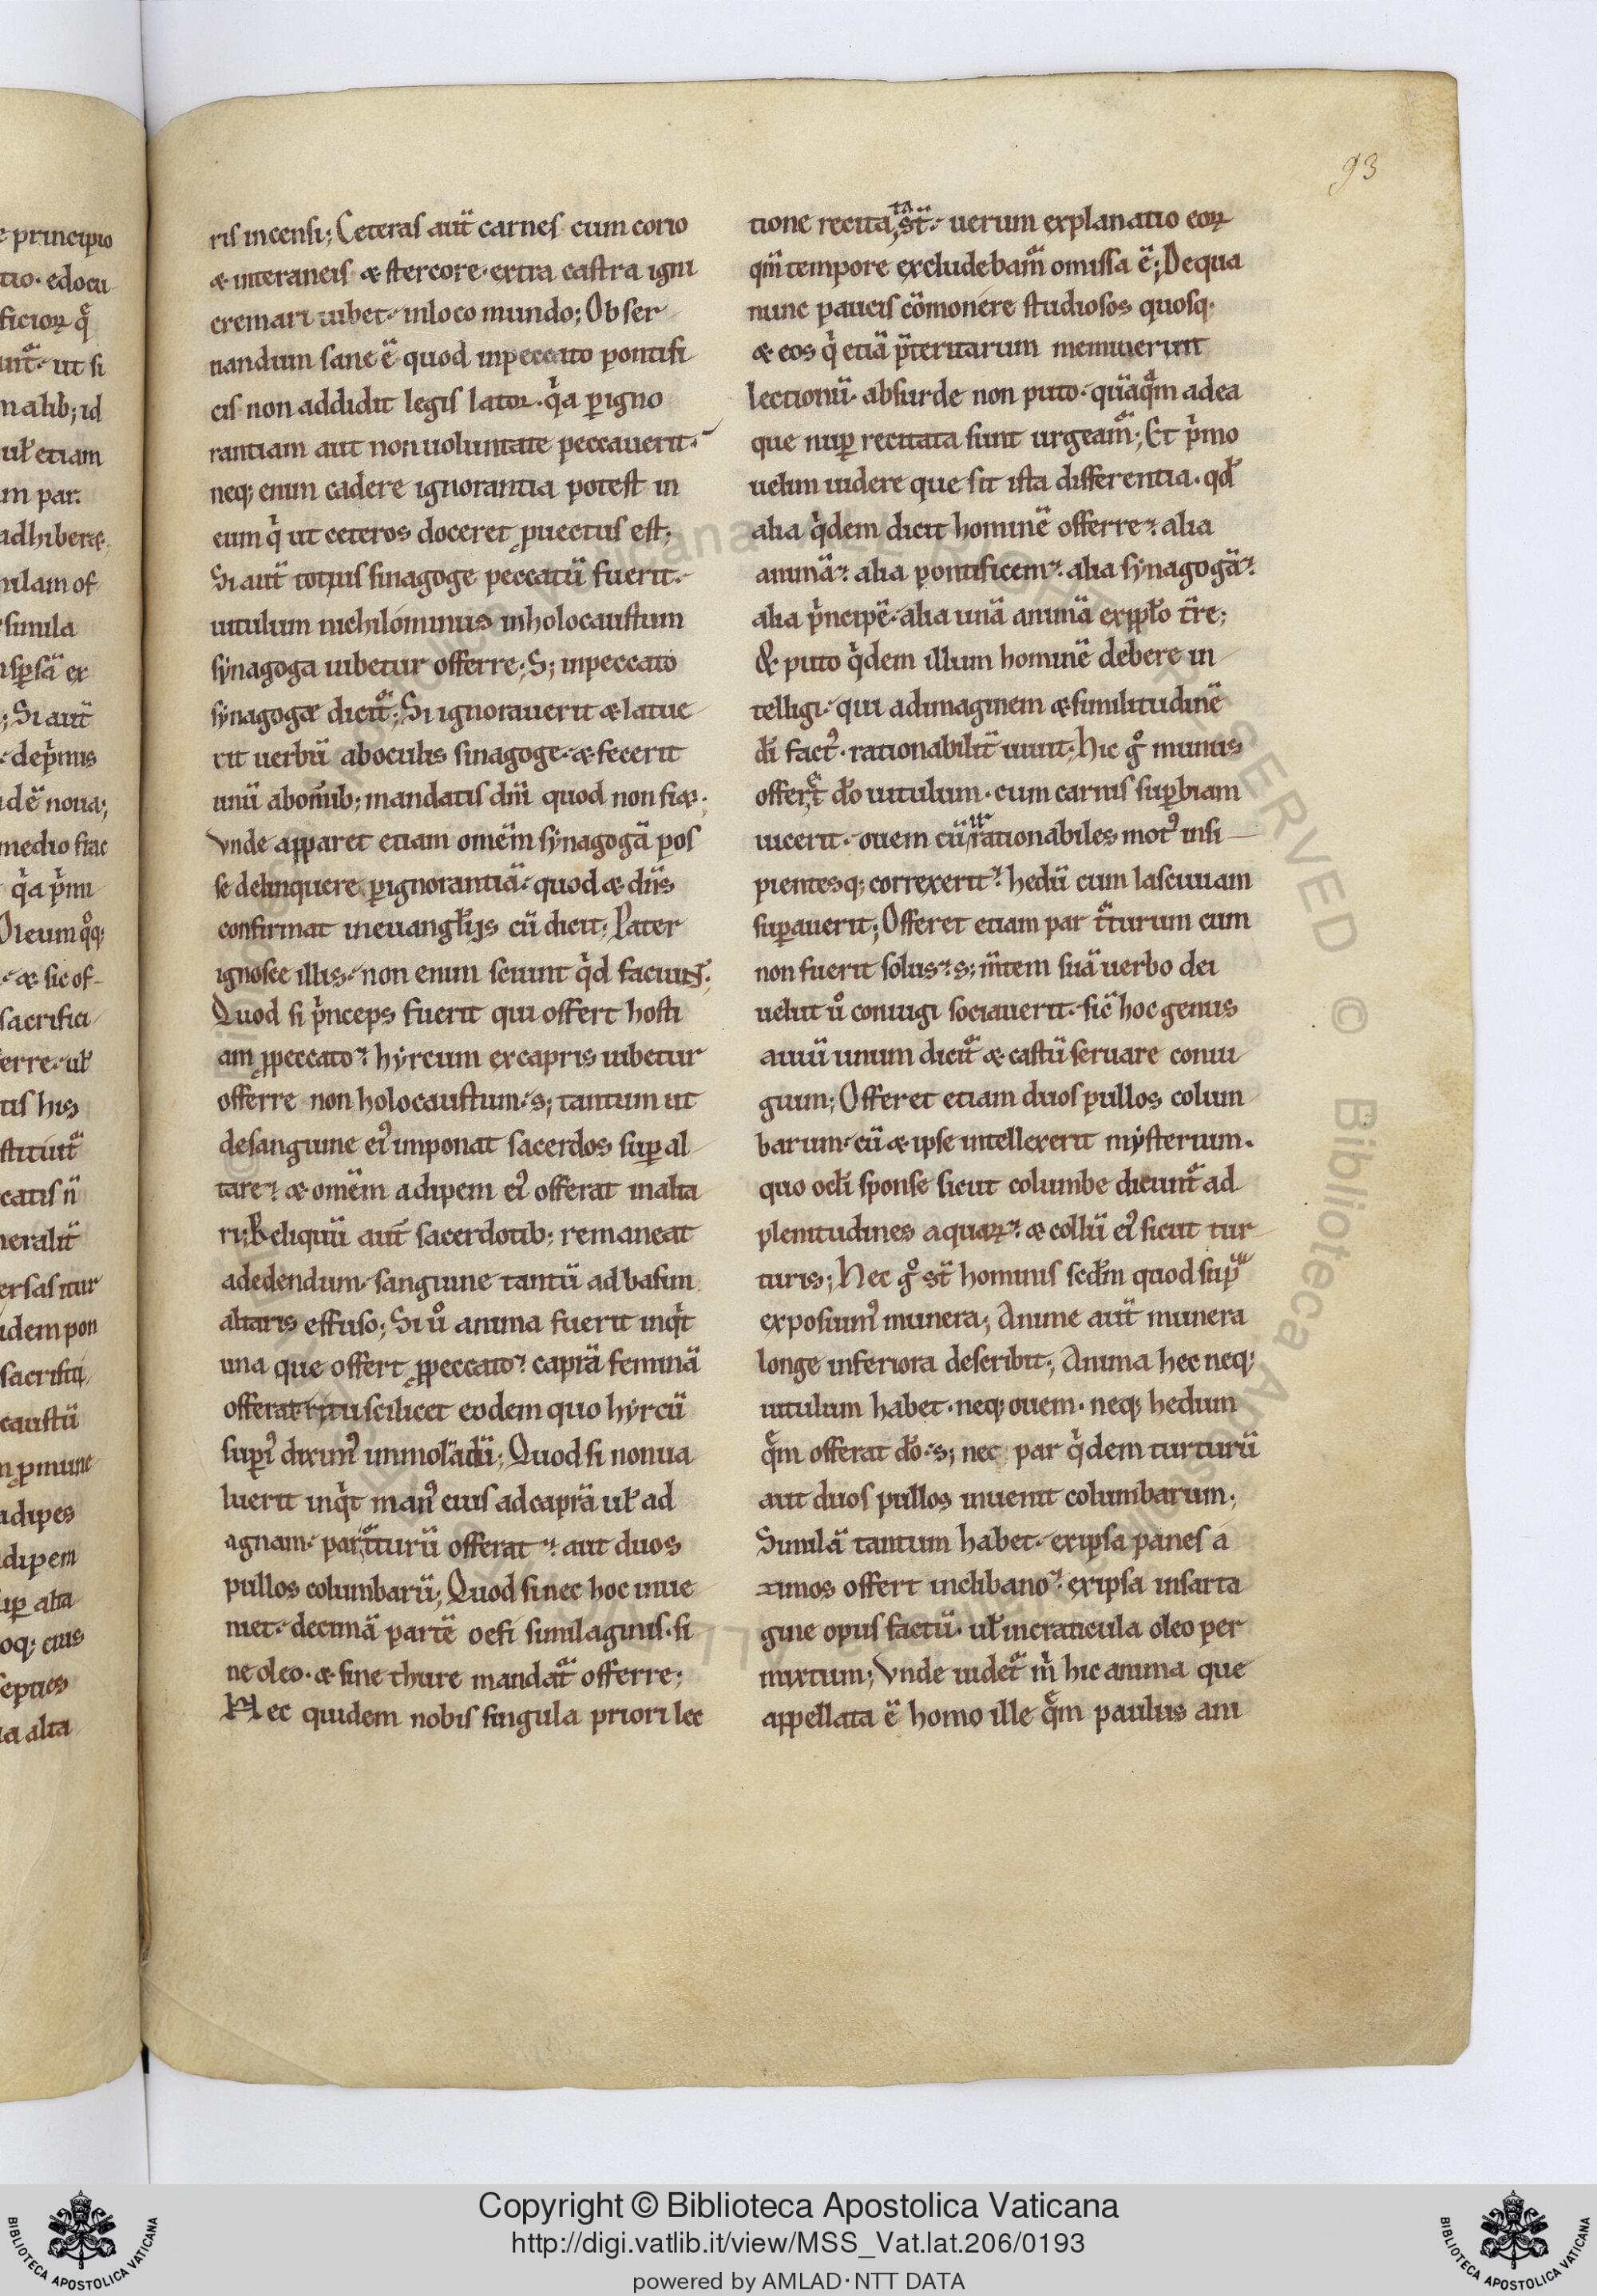 93
ris incensi; Ceteras aut̄ carnes cum corio
& interaneis & stercore· extra castra igni
cremari iubet· inloco mundo; Obser
uandum sane ē quod inpeccato pontifi
cis non addidit legis lator· q̇a ꝑigno
rantiam aut non uoluntate peccauerit·
neq; enim cadere ignorantia potest in
eum q̇ ut ceteros doceret ꝓuectus est;
Si aut̄ totius sinagoge peccatū fuerit·
uitulum nichilominus inholocaustum
synagoga iubetur offerre; S; inpeccato
synagogæ dicit᷑; Si ignorauerit & latue
rit uerbū aboculis sinagoge· & fecerit
unū abom̄ib; mandatis dn̄i quod non fi&;
Vnde apparet etiam omēm synagogā pos
se delinquere ꝑignorantiā· quod & dn̄s
confirmat ineuangłijs cū dicit; Pater
ignosce illis· non enim sciunt q̇d faciunt;
Quod si pⁱnceps fuerit qui offert hosti
am ꝓpeccato· hyrcum excapris iubetur
offerre non holocaustum· s; tantum ut
desanguine ei᾿ imponat sacerdos suꝑ al
tare· & omēm adipem ei᾿ offerat inalta
ri; Reliquū aut̄ sacerdotib; remaneat
adedendum· sanguine tantū ad basim
altaris effuso; Si uͦ anima fuerit inqⁱt
una que offert ꝓpeccato· caprā feminā
offerat ritu scilicet eodem quo hyrcū
supi᾿ dixim᾿ immolādū; Quod si nonua
luerit inqⁱt man᾿ eius adcaprā uł ad
agnam· par tͣturū offerat· aut duos
pullos columbarū; Quod si nec hoc inue
niet· decimā partē oefi similaginis· si
ne oleo· & sine thure mandat᷑ offerre;
Hec quidem nobis singula priori lec
tione recitata sn̄t· uerum explanatio eoꝝ
qm̄ tempore excludebam᷑ omissa ē; Dequa
nunc paucis cōmonere studiosos quosq;
& eos q̇ etiā p̄teritarum meminerunt
lectionū· absurde non puto· quāqͣm adea
que nuꝑ recitata sunt urgeam᷑; Et pⁱmo
uelim uidere que sit ista differentia· qd̄
alia qⁱdem dicit hominē offerre· alia
animā· alia pontificem· alia synagogā·
alia pⁱncipē· alia unā animā expꝉo tr̄e;
& puto qⁱdem illum hominē debere in
telligi· qui adimaginem & similitudinē
dī fact᾿· rationabilit̄ uiuit; Hic gͦ munus
offert dō uitulum· cum carnis suꝑbiam
uicerit· ouem cū irrationabiles mot᾿ insi
pientesq; correxerit· hedū cum lasciuiam
suꝑauerit; Offeret etiam par tͣturum cum
non fuerit solus· s; m̄tem suā uerbo dei
uelut uͦ coniugi sociauerit· sic̄ hoc genus
auiū unum dicit᷑ & castū seruare coniu
gium; Offeret etiam duos pullos colum
barum· cū & ipse intellexerit mysterium·
quo ocłi sponse sicut columbe dicunt᷑ ad
plenitudines aquaꝝ· & collū ei᾿ sicut tur
turis; Hec gͦ sn̄t hominis scd̄m quod supͣ
exposuim᾿ munera; Anime aut̄ munera
longe inferiora describit; Anima hec neq;
uitulum habet· neq; ouem· neq; hedum
qͤm offerat dō· s; nec par qⁱdem turturū
aut duos pullos inuenit columbarum;
Similā tantum habet· exipsa panes a
zimos offert inclibano· exipsa insarta
gine opus factū· uł incraticula oleo per
mixtum; Vnde uidet᷑ m̄ hic anima que
appellata ē homo ille qͤm paulus ani
Copyright © Biblioteca Apostolica Vaticana
http://digi.vatlib.it/view/MSS_Vat.lat.206/0193
powered by AMLAD·NTT DATA
BIBLIOTECA APOSTOLICA VATICANA
BIBLIOTECA APOSTOLICA VATICANA